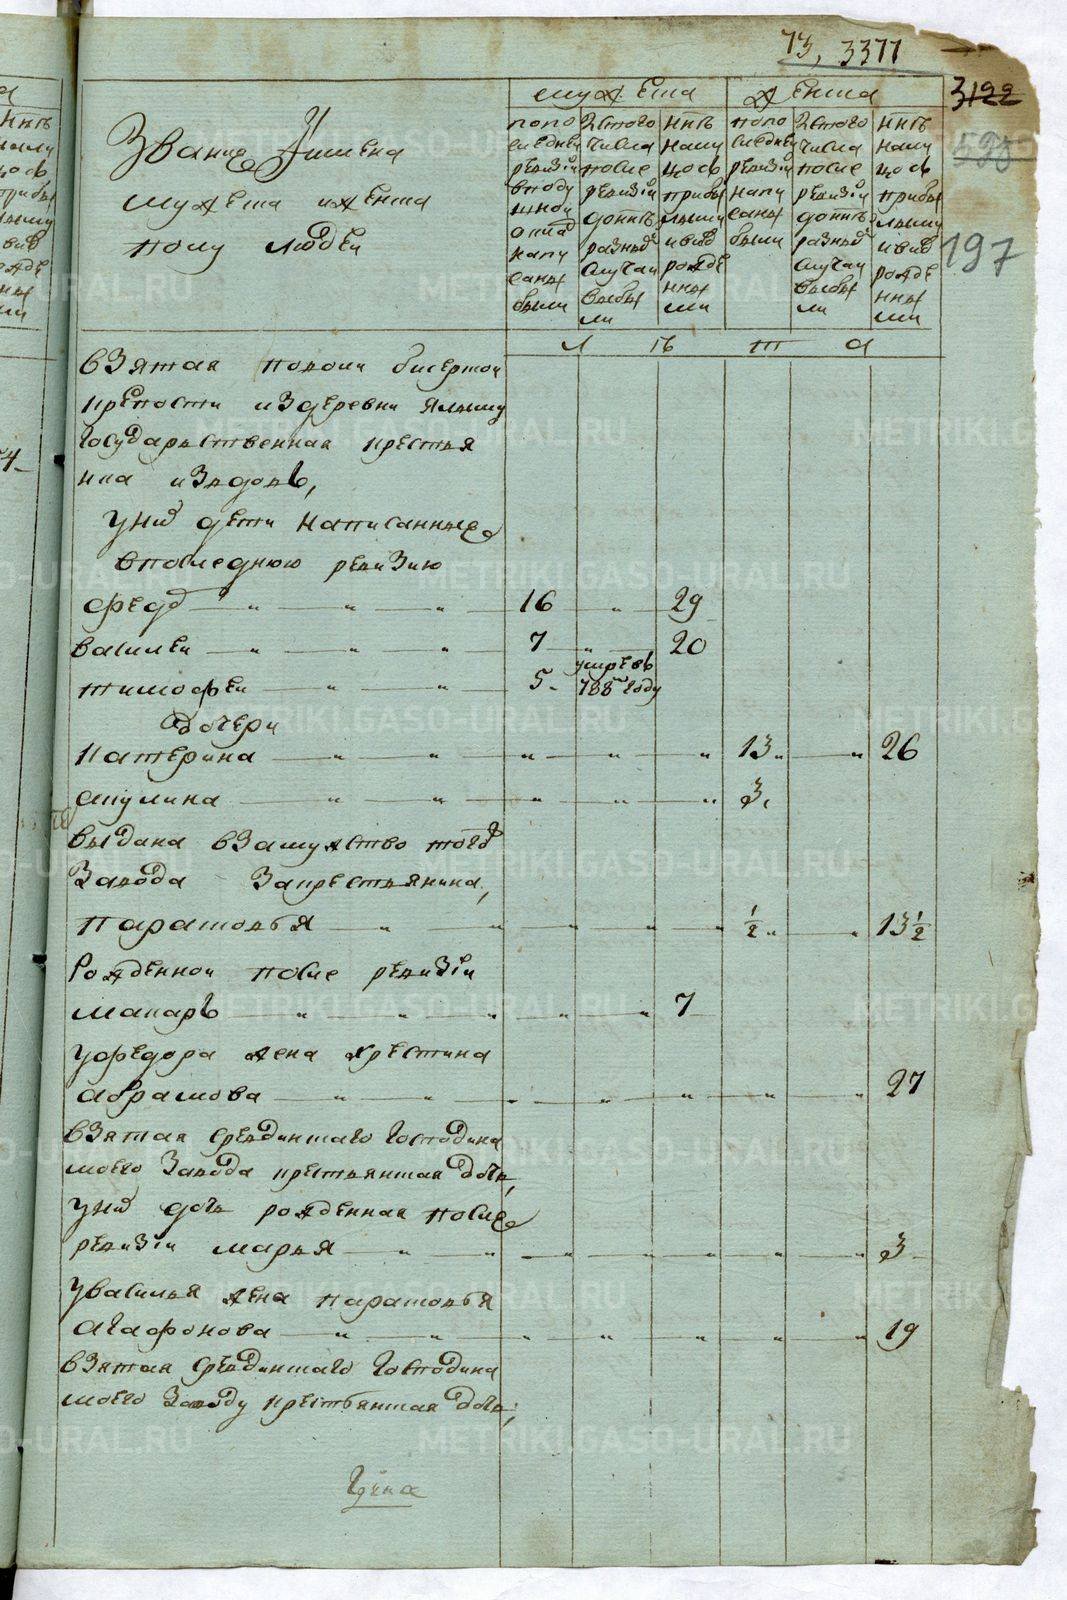 73, 3377
3122
595
197
мужеска
женска
Звание Имена
мужеска и женска
полу людей
попо
следней
ревизии
в поду
шной
окла
напи
саны
были
Изтого
числа
после
ревизии
донне
разны
случаи
выбы
ли
Ныне
на лицо
съ
прибы
лыми
и вно
рожде
нны
ми
попо
следней
ревизии
напи
саны
были
Изтого
числа
после
ревизии
донне
разны
случаи
выбы
ли
Ныне
на лицо
съ
прибы
лыми
и вно
рожде
нны
ми
л ѣ т а
взятая подом бисертой
крепости из деревни
государственная крестья
нка издов,
у них дети написанные
в последнюю ревизию
Федор 16 29
Василей 7 20
Тимофей 5 умре въ 788м году
дочери
Катерина 13 26
Акулина 3
выдана в замужство того
завода за крестьянина,
Парасковья ½ 13½
Рожденной после ревизии
Макаръ 7
у Федора жена Хрестина
Абрамова 27
взятая Сревдинскаго господина
моего завода крестьянская дочь,
у них дочь рожденная после
ревизии Марья 3
у Василья жена Парасковья
Агафонова 19
взятая Сревдинскаго господина
моего заводу крестьянская дочь;
METRIKI.GASO-URAL.RU